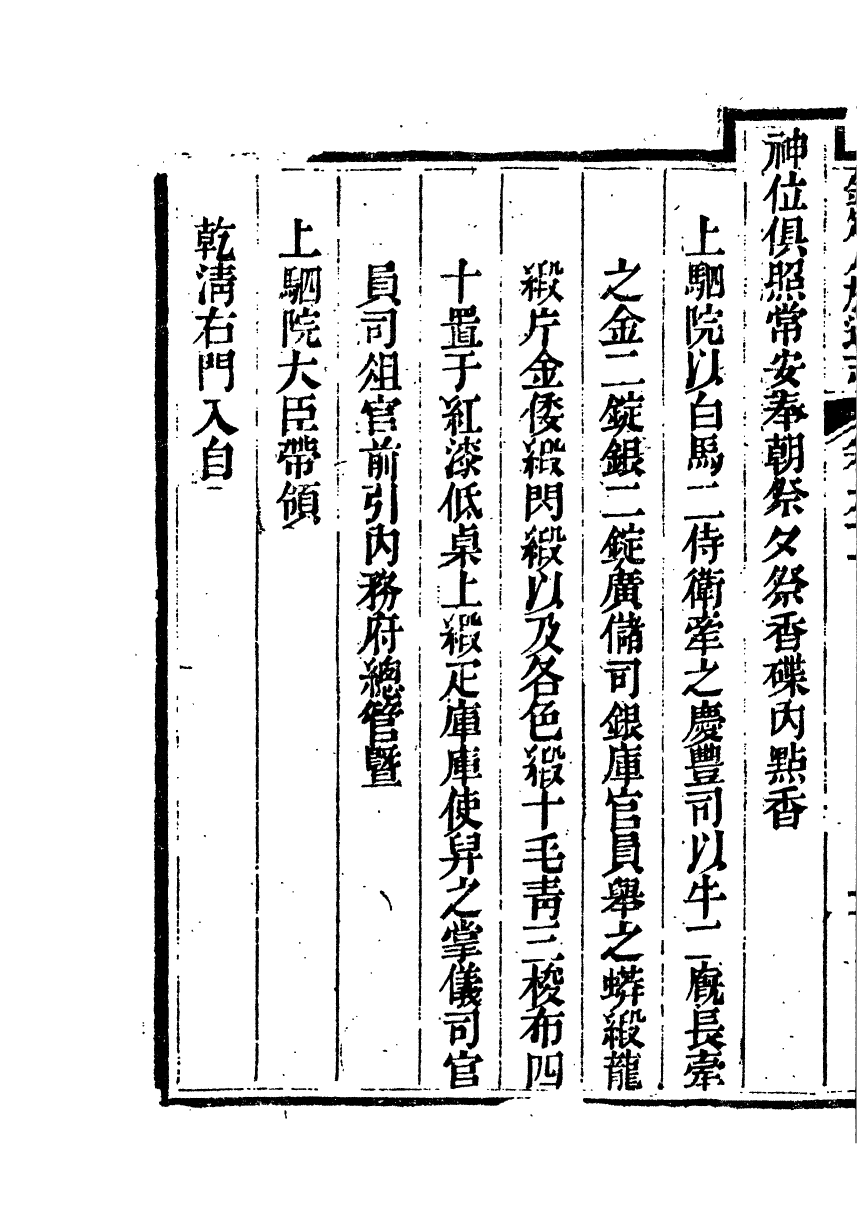 神位俱照常安奉朝祭夕祭香碟內點香
上駟院以白馬二侍衛牽之慶豐司以牛二廐長牽
之金二錠銀二錠廣儲司銀庫官員舉之蟒緞龍
緞片金倭緞閃緞以及各色緞十毛青三梭布四
十置于紅漆低桌上緞疋庫庫使舁之掌儀司官
員司俎官前引內務府總管暨
上駟院大臣帶領
乾清右門入自